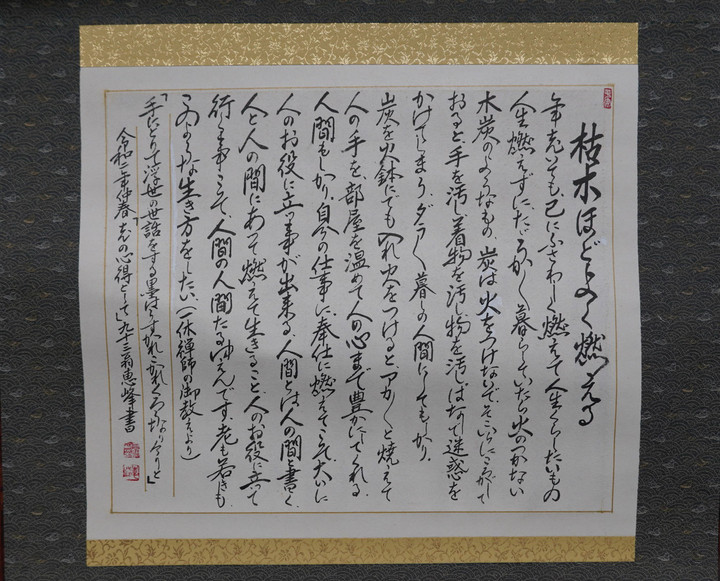 枯木ほどよく燃える
年老いても、己にふさわしく燃えて人生くらしたいもの
人生燃えずに、だらだらと暮らしていたら火のつかない
木炭のようなもの。炭は火をつけないで、そこいらにころがして
おると手を汚し着物を汚し物を汚しぱなしで迷惑を
かけてしまう。ダラダラ暮しの人間にしてもしかり。
炭を火鉢にでも入れ火をつけるとアカアカと焼えて
人の手を、部屋を温めて人の心まで豊かにしてくれる。
人間もしかり、自分の仕事に、奉仕に燃えてこそ大いに
人のお役に立つ事が出来る。人間とは人の間と書く。
人と人の間にあって燃えて生きること、人のお役に立って
行く事こそ、人間の人間たるゆえんです。老も若きも
このような生き方をしたい。(一休禅師の御教えより)
「手にとりて浮世の世話をする墨はうすかれこかれくろうなりけりと」
令和二年仲春「老の心得として」九十三翁恵峰書